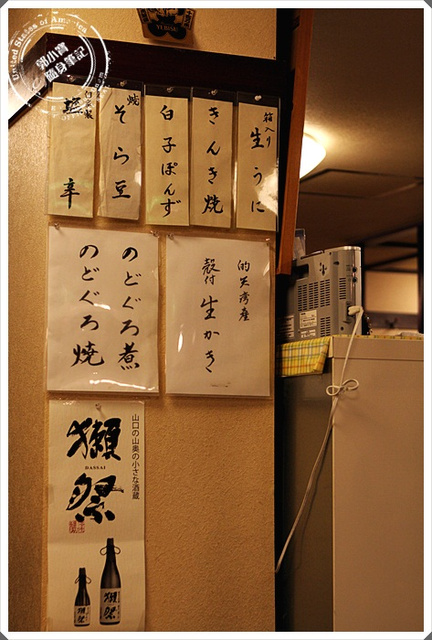 United States of America
郭小寶
隨身筆記
箱入り
生うに
きんき焼
白子ぽんず
焼
そら豆
自家製
辛
的矢湾産
殻付 生かき
のどぐろ煮
のどぐろ焼
山口の山奥の小さな酒蔵
獺祭
DASSAI
獺祭
獺祭